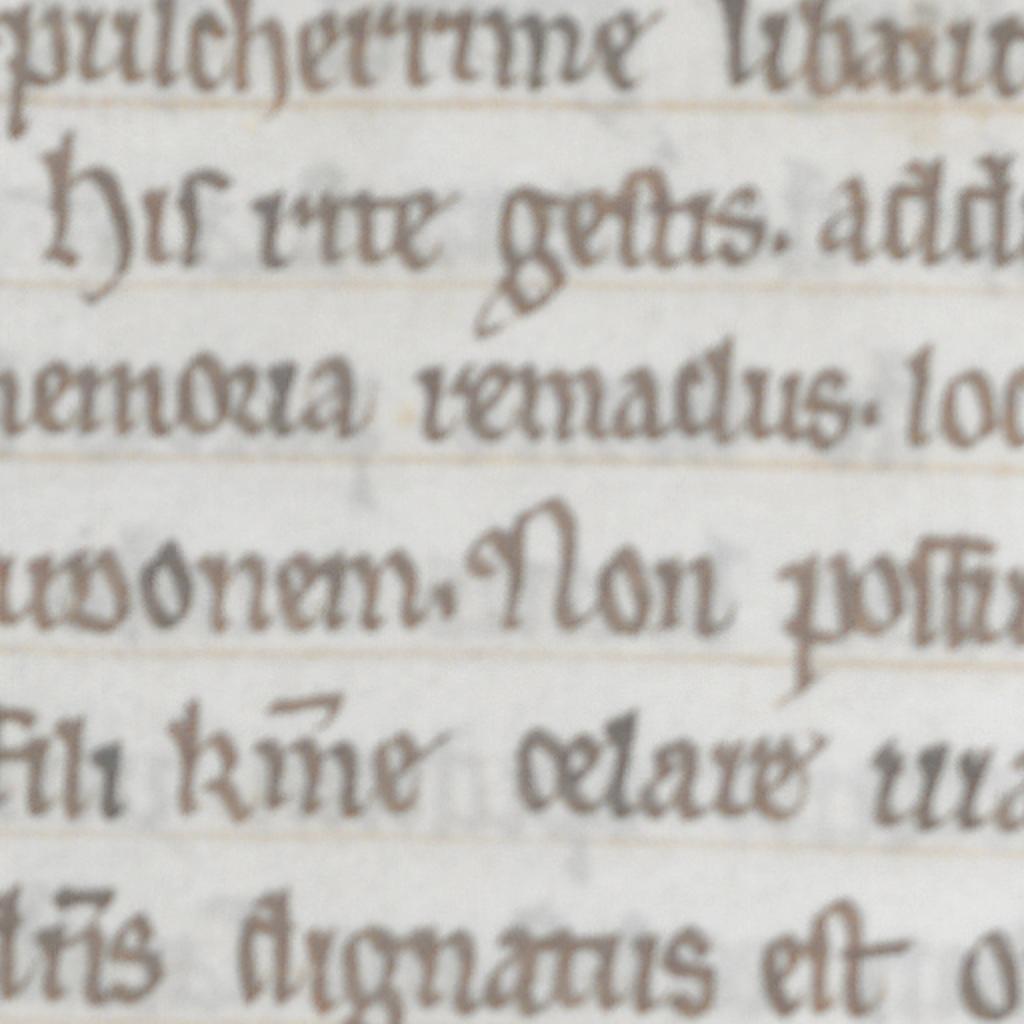 pulcherrime libauit
His rite gestis. addi
memoria remaclus. loc
onem. Non possu
fili km̄e celare
dn̄s dignatus est o